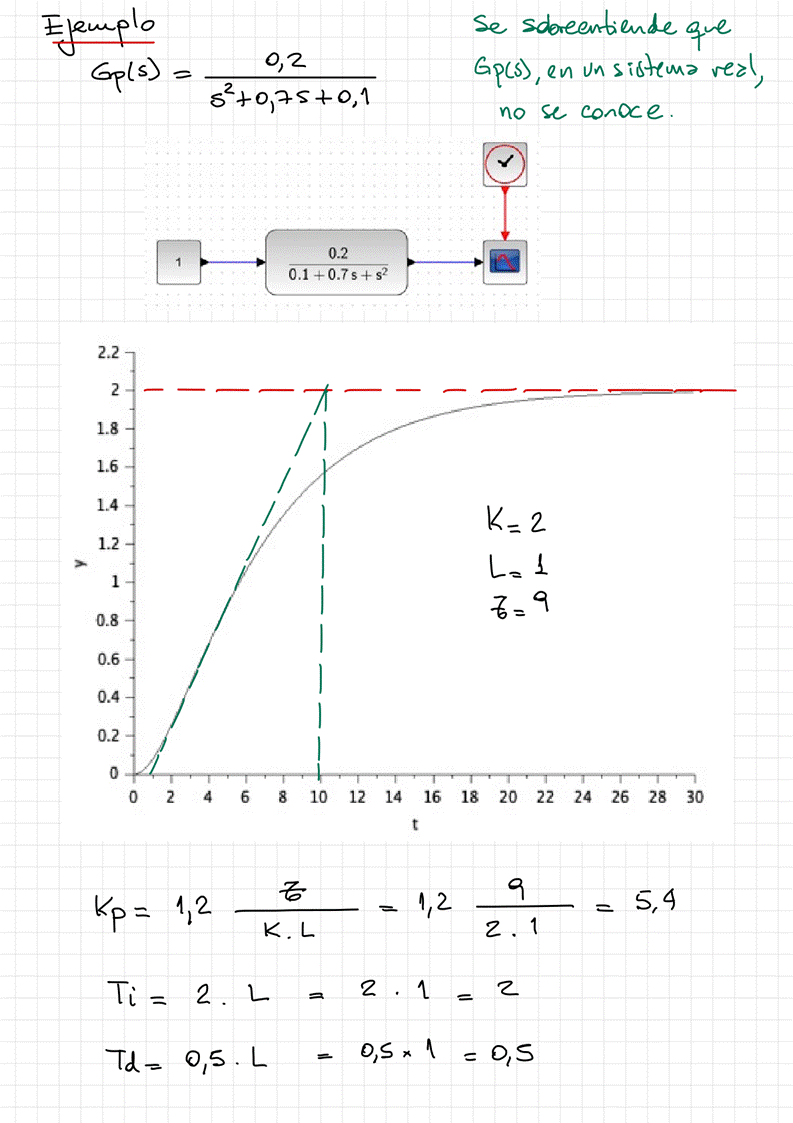 Ejemplo
Gp(s) = 0,2 / s²+0,7s+0,1
Se sobreentiende que
Gp(s), en un sistema real,
no se conoce.
1
0.2
0.1+0.7s+s²
2.2
2
1.8
1.6
1.4
1.2
1
0.8
0.6
0.4
0.2
0
y
K=2
L=1
ꞇ=9
0 2 4 6 8 10 12 14 16 18 20 22 24 26 28 30
t
Kp= 1,2 ꞇ / K.L = 1,2 9 / 2.1 = 5,4
Ti = 2 . L = 2 . 1 = 2
Td = 0,5 . L = 0,5 × 1 = 0,5